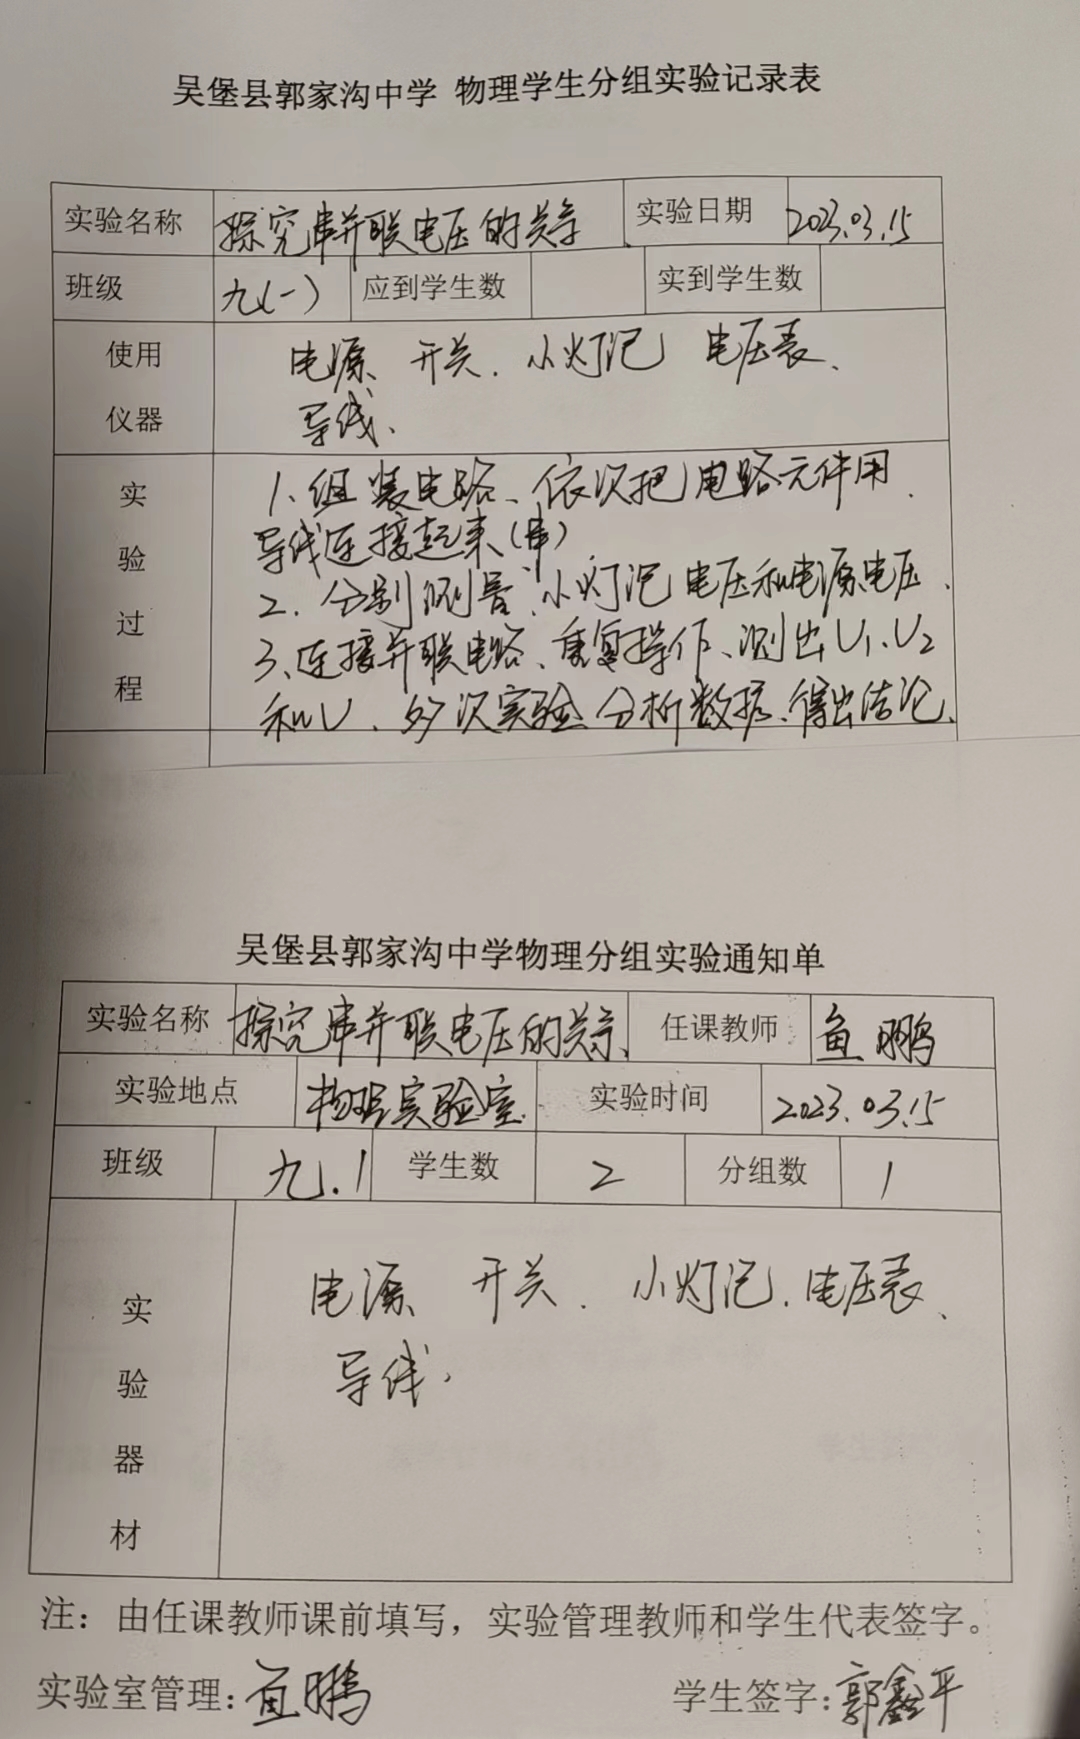 吴堡县郭家沟中学 物理学生分组实验记录表
实验名称 探究串并联电压的关系 实验日期 2023.03.15
班级 九(一) 应到学生数 实到学生数
使用仪器 电源、开关、小灯泡 电压表、
导线、
实验过程 1、组装电路、依次把电路元件用
导线连接起来(串)
2、分别测量小灯泡电压和电源电压、
3、连接并联电路、重复操作、测出U1、U2
和U、多次实验分析数据、得出结论、
吴堡县郭家沟中学物理分组实验通知单
实验名称 探究串并联电压的关系、 任课教师 鱼鹏
实验地点 物理实验室 实验时间 2023.03.15
班级 九.1 学生数 2 分组数 1
实验器材 电源 开关、小灯泡、电压表、
导线、
注：由任课教师课前填写，实验管理教师和学生代表签字。
实验室管理：鱼鹏 学生签字：郭鑫平